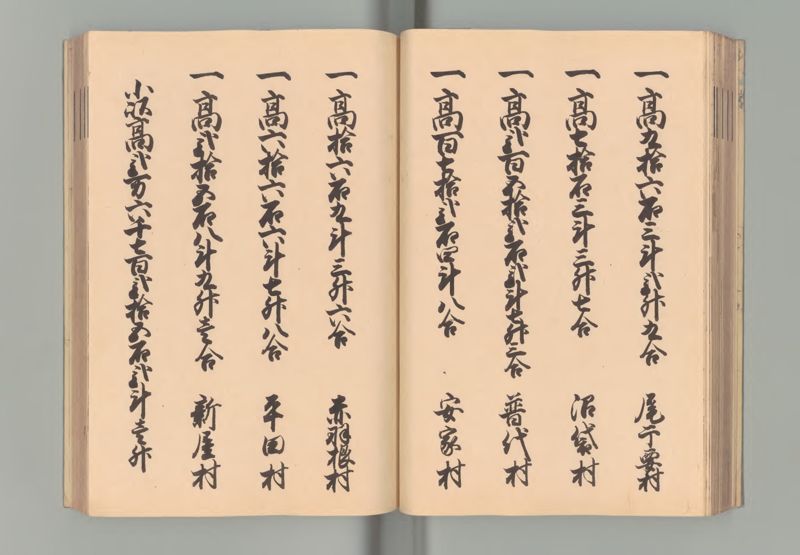 一高九拾六石三斗弐升九合 尾肝要村
一高七拾石三斗三升七合 沼袋村
一高弐百五拾弐石弐斗七升三合 普代村
一高百七拾弐石四斗八合 安家村
一高拾六石九斗三升六合 赤羽根村
一高六拾六石六斗七升八合 平田村
一高弐拾五石八斗九升壱合 新屋村
小以高弐万六千七百弐拾五石弐斗壱升